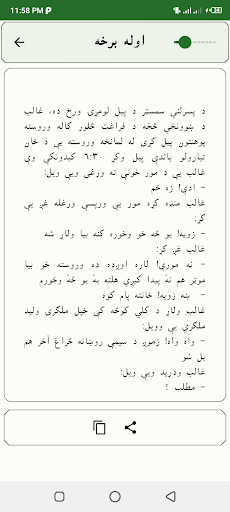 11:58 PM
اوله برخه
د پسرلني سمستر د پيل لومړۍ ورځ ده، غالب
د ښوونځي څخه د فراغت څلور کاله وروسته
پوهنتون پيل کړی له لمانځه وروسته يې د ځان
تيارولو باندې پيل وکړ ۶:۳۰ کيدونکې وې
غالب يې د مور خونې ته ورغی ويې ويل:
- ادې! زه ځم
غالب منډه کړه مور يې ورپسې ورغله غږ يې
کړ:
- زويه! يو څه خو وخوره کنه بيا ولاړ شه
غالب غږ کړ:
- نه مورې! لاره اوږده ده وروسته خو بيا
موټر هم نه پيدا کيږي هلته به يو څه وخورم
- ښه زويه! ځانته پام کوه
غالب ولاړ د کلي کوڅه کې خپل ملګری وليد
ملګري يې وويل:
- واه واه! زموږ د سيمې روښانه څراغ آخر هم
بل شو
غالب ودريد ويې ويل:
- مطلب ؟